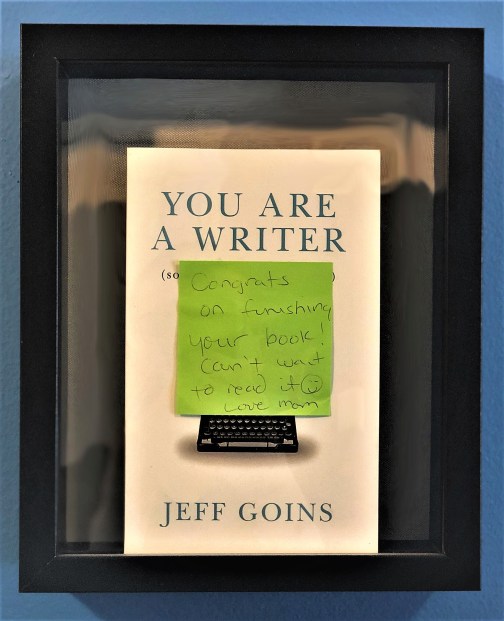 YOU ARE
A WRITER
(so )
Congrats
on finishing
your book!
Can't wait
to read it
Love mom
JEFF GOINS